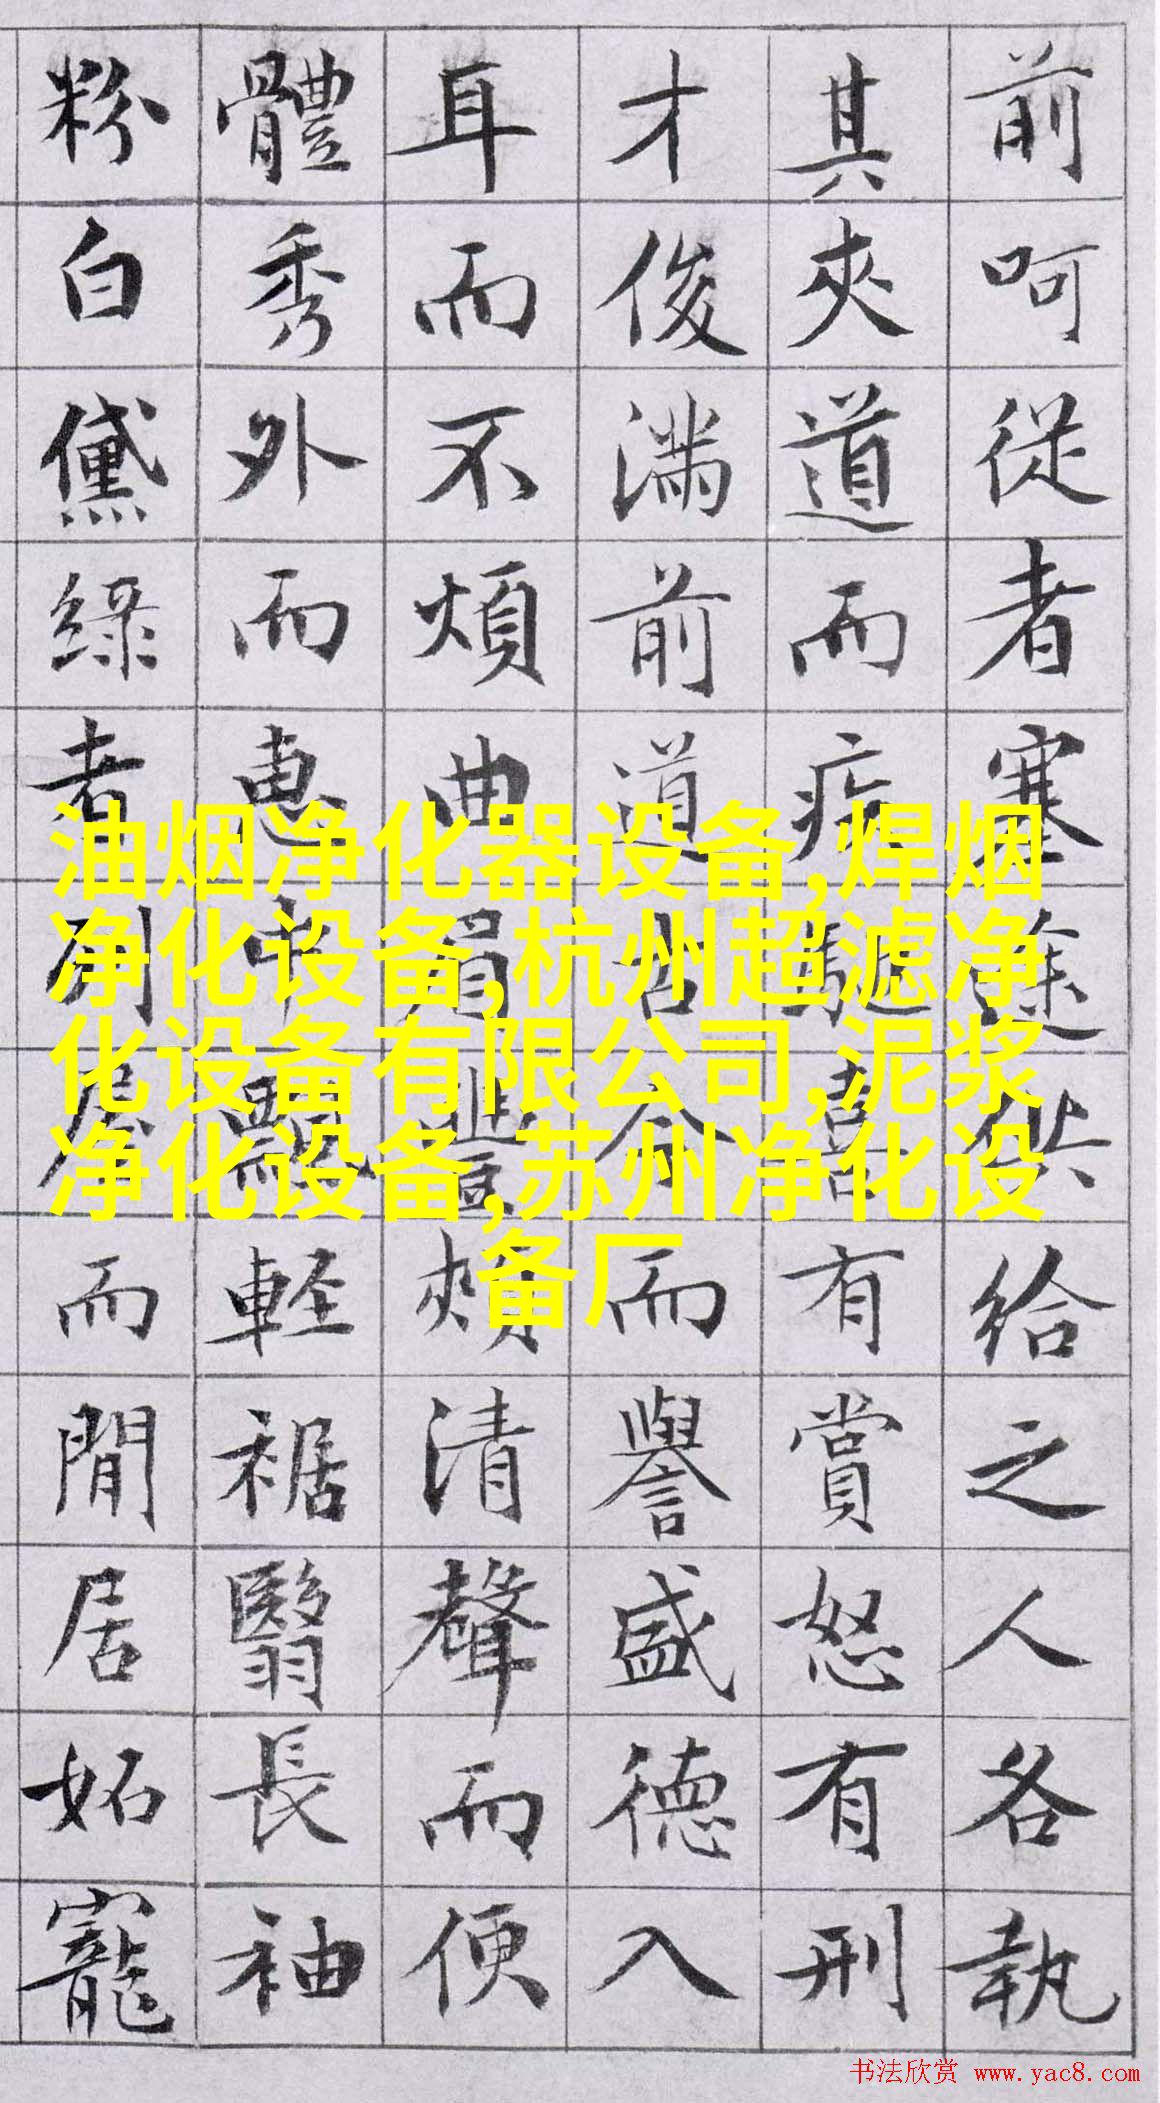 前呵從者塞途供給之人各執
其夾道而疾馳喜有賞怒有刑
才俊滿前道古今而譽盛德入
耳而不煩曲眉豐頰清聲而便
體秀外而惠中飄輕裾翳長袖
粉白黛綠者列屋而閒居妬寵
油烟净化器设备,焊烟
净化设备,杭州超滤净
化设备有限公司,泥浆
净化设备,苏州净化设
备厂
书法欣赏 www.yac8.com